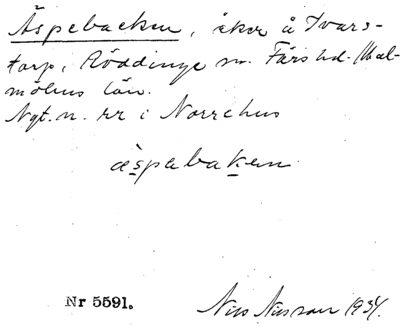 Äspebacken, åker å Tvars-
torp, Röddinge sn. Färs hd. Mal-
möhus län.
Ngt. n. rr i Norrehus
äspabaken
Nr 5591. Nils Nilsson 1934.